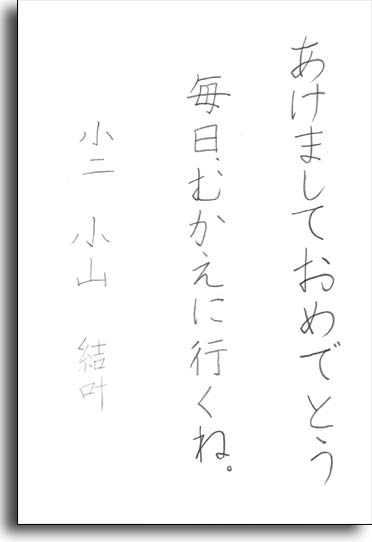 あけましておめでとう
毎日、むかえに行くね。
小二　小山　結叶